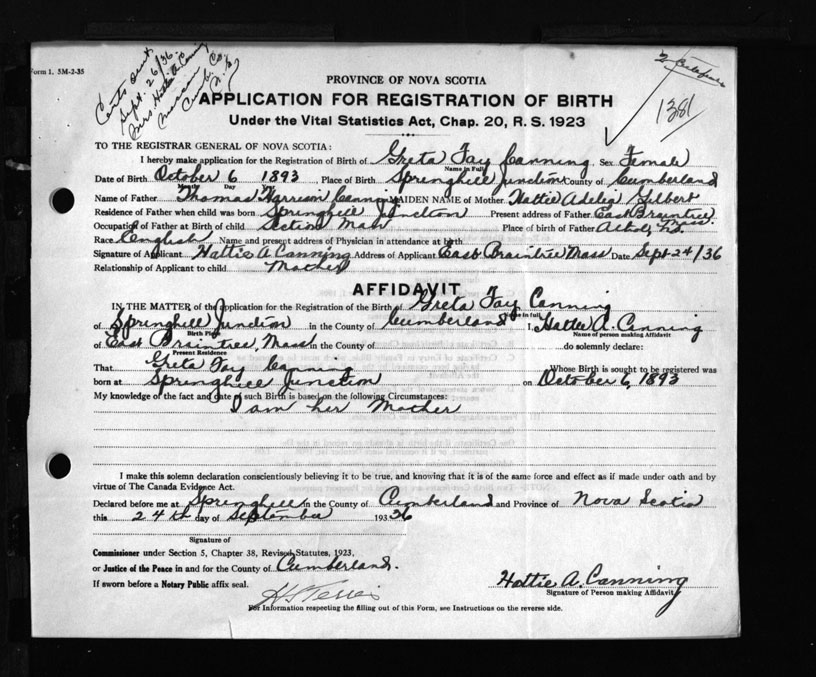 Form 1. 5M-2-35
Certs sent
Sept. 26/36.
Mrs Hattie A. Canning
Cumb. Co.
N.S.
2
1381
PROVINCE OF NOVA SCOTIA
APPLICATION FOR REGISTRATION OF BIRTH
Under the Vital Statistics Act, Chap. 20, R. S. 1923
TO THE REGISTRAR GENERAL OF NOVA SCOTIA:
I hereby make application for the Registration of Birth of Greta Fay Canning Sex Female
Name in Full
Date of Birth October 6 1893 Place of Birth Springhill Junction County of Cumberland
Month Day
Name of Father Thomas Harrison Canning MAIDEN NAME of Mother Hattie Adelia Gilbert
Residence of Father when child was born Springhill Junction Present address of Father East Braintree Mass.
Occupation of Father at Birth of child Section Man Place of birth of Father
Race English Name and present address of Physician in attendance at birth
Signature of Applicant Hattie A Canning Address of Applicant East Braintree Mass Date Sept 24/36
Relationship of Applicant to child Mother
AFFIDAVIT
IN THE MATTER of the Application for the Registration of the Birth of Greta Fay Canning
Name in full
of Springhill Junction in the County of Cumberland I, Hattie A. Canning
Birth Place Name of person making Affidavit
of East Braintree, Mass in the County of do solemnly declare:
Present Residence
That Greta Fay Canning Whose Birth is sought to be registered was
born at Springhill Junction on October 6, 1893
My knowledge of the fact and date of such Birth is based on the following Circumstances:
I am her Mother
I make this solemn declaration conscientiously believing it to be true, and knowing that it is of the same force and effect as if made under oath and by
virtue of The Canada Evidence Act.
Declared before me at Springhill in the County of Cumberland and Province of Nova Scotia
this 24th day of September 1936
Signature of
Commissioner under Section 5, Chapter 38, Revised Statutes, 1923,
or Justice of the Peace in and for the County of Cumberland.
If sworn before a Notary Public affix seal.
Hattie A. Canning
Signature of Person making Affidavit
For Information respecting the filling out of this Form, see Instructions on the reverse side.